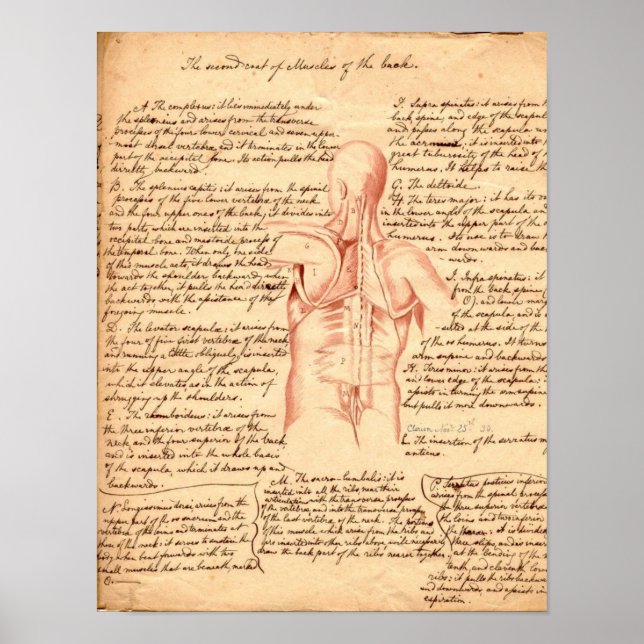 The second coat of Muscles of the back.
A The complexus: it lies immediately under
the splenius and arises from the transverse
processes of the four lower cervical and seven upper-
most dorsal vertebræ and it terminates in the lower
part of the occipital bone. Its action pulls the head
directly backwards.
B. The splenius capitis: it arises from the spinal
processes of the five lower vertebræ of the neck
and the four upper ones of the back; it divides into
two parts, which are inserted into the
occipital bone and mastoide process of
the temporal bone. When only one side
of this muscle acts, it draws the head
towards the shoulder backward, when
the act together, it pulls the head directly
backwards with the assistance of the
foregoing muscle.
D. The levator scapulæ: it arises from
the four of five first vertebræ of the neck
and running a little obliquely, is inserted
into the upper angle of the scapula,
which it elevates as in the action of
shrugging up the shoulders.
E. The rhomboideus: it arises from
the three inferior vertebræ of the
neck and the four superior of the back
and is inserted into the whole basis
of the scapula, which it draws up and
backwards.
N. Longissimus dorsi arises from the
upper part of the os sacrum and the
vertebræ of the loins and terminates at
those of the neck: it serves to sustain the
body when bent forwards with two
small muscles that are beneath, marked
O.
M. The sacro-lumbalis: it is
inserted into all the ribs, near their
articulation with the transverse process
of the vertebra, and into the transverse process
of the last vertebra, of the neck. The portions
of this muscle which arise from the ribs and
are inserted into other ribs above, will necessarily
draw the back part of the ribs nearer together.
F. Supra spinatus: it arises from
back, spine, and edge of the scapul
and passes along the scapula un
the acromion; it is inserted into
great tuberosity of the head of
humerus. It helps to raise th
G. The deltoide.
H. The teres major: it has its o
in the lower angle of the scapula and
inserted into the upper part of the
humerus. Its use is to draw
arm downwards and back
wards.
I. Infra spinatus: it
from the back spine,
O) and lower marg
of the scapula, and is
serted at the side of the
of the os humerus. It turns
arm supine and backwards
K. Teres minor: it arises from th
and lower edge of the scapula:
assists in turning the arm supine
but pulls it more downwards.
Nov. 25th 30.
L. The insertion of the serratus m
anticus.
P. Serratus posticus inferior
arises from the spinal process
the three superior vertebræ
the loins and two inferior
the thorax: it is divided
three slips, and is inser
at the bending of the
tenth, and eleventh low
ribs: it pulls the ribs backward
and downwards and assists in
expiration.
B
G
I
K
E
L
M
N
P